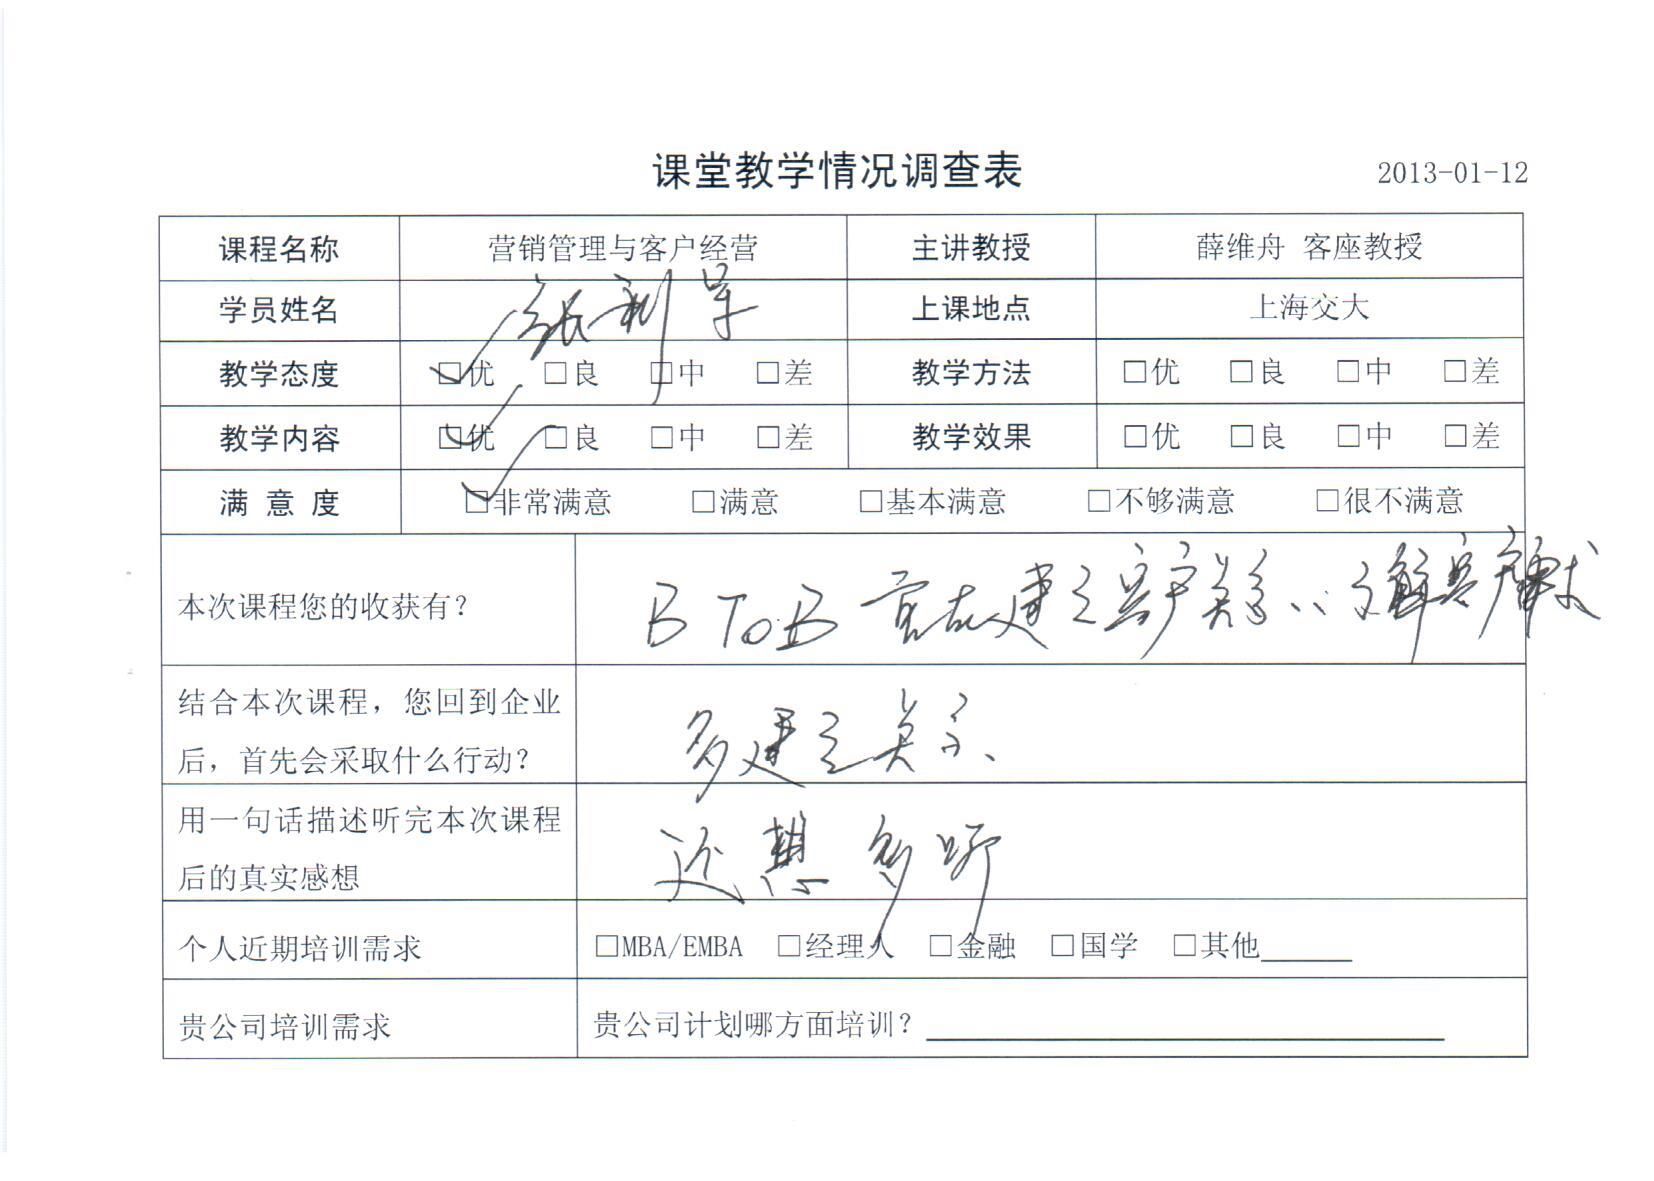 课堂教学情况调查表 2013-01-12
课程名称 营销管理与客户经营 主讲教授 薛维舟 客座教授
学员姓名 张利军 上课地点 上海交大
教学态度 ☑优 □良 □中 □差 教学方法 □优 □良 □中 □差
教学内容 ☑优 □良 □中 □差 教学效果 □优 □良 □中 □差
满 意 度 ☑非常满意 □满意 □基本满意 □不够满意 □很不满意
本次课程您的收获有？ B To B 建立客户关系 了解客户
结合本次课程，您回到企业
后，首先会采取什么行动？ 多建立关系、
用一句话描述听完本次课程
后的真实感想 还想多听
个人近期培训需求 □MBA/EMBA □经理人 □金融 □国学 □其他
贵公司培训需求 贵公司计划哪方面培训？